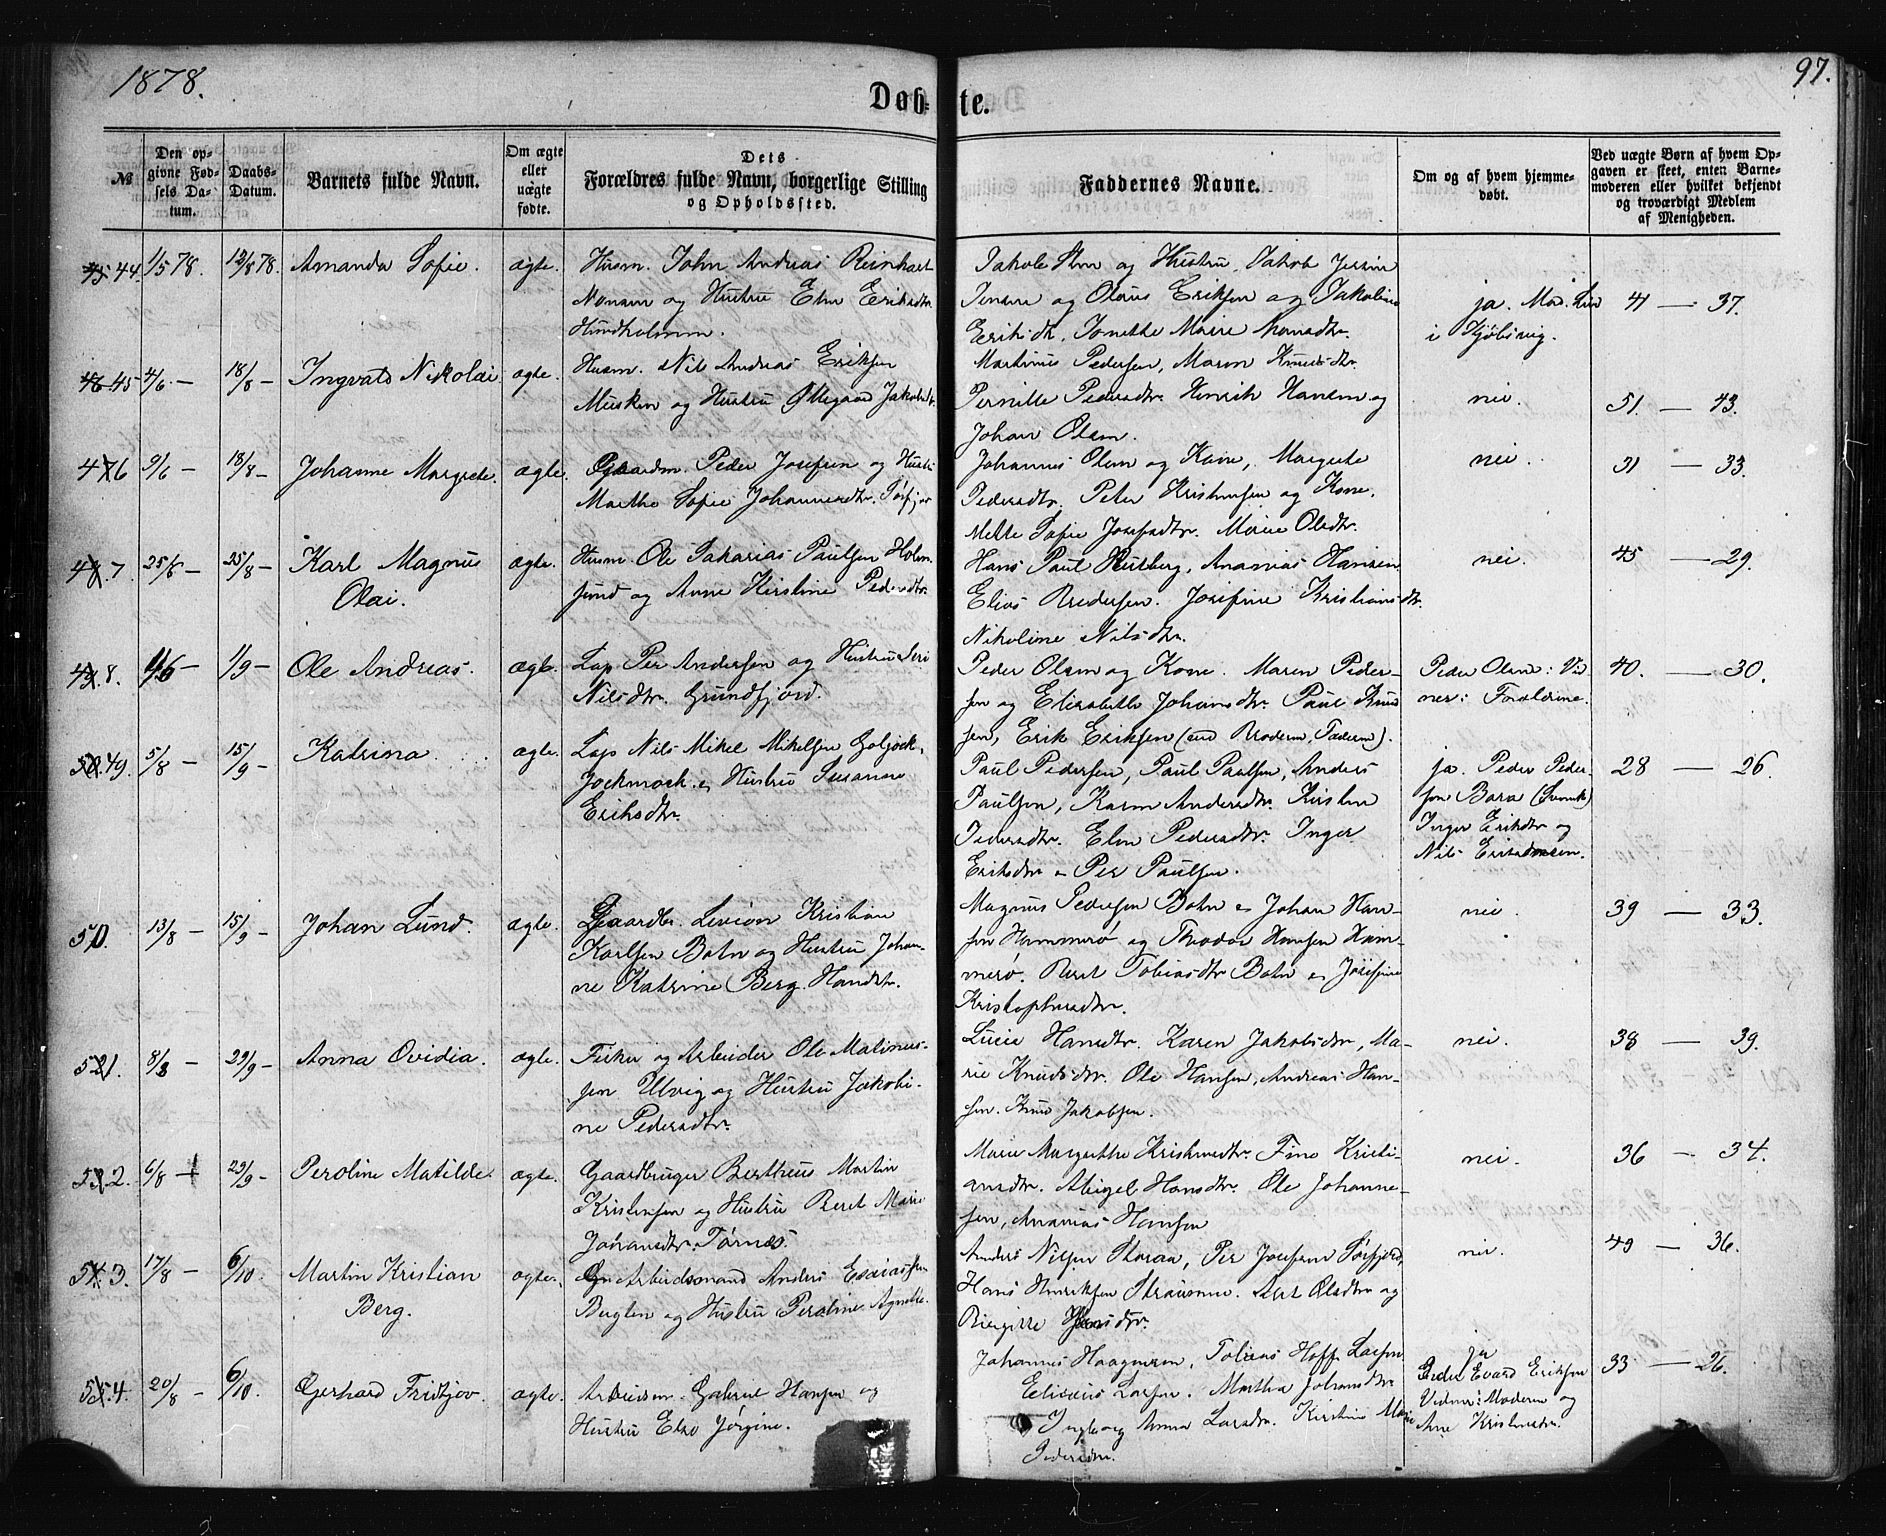 1878.
97.
Døb-
te.
№
Den op-
givne Fød-
sels Da-
tum.
Daabs-
Datum.
Barnets fulde Navn.
Om ægte
eller
uægte
fødte.
Dets
Forældres fulde Navn, borgerlige Stilling
og Opholdssted.
Faddernes Navne.
Om og af hvem hjemme-
døbt.
Ved uægte Børn af hvem Op-
gaven er skeet, enten Barne-
moderen eller hvilket bekjendt
og troværdigt Medlem
af Menigheden.
44. 1/5 78. 12/8 78. Amanda Sofie. ægte.
Husm. John Andreas Reinhart
og Hustru Elen Eriksdtr.
Hundholmen.
og Hustru, Jakob
og Olaus Eriksen og Jakobine
Eriksdtr, Jonette Marie Hansdtr.
ja.
i
41 — 37.
45 4/6 — 18/8 — Ingvald Nikolai ægte.
Husm. Nils Andreas Eriksen
Musken og Hustru Ollegaard Jakobsdtr.
Martinus Pedersen, Maren Knudsdtr.
Pernille Pedersdtr. Henrik Hansen og
Johan Olsen.
nei.
51. — 43.
46 9/6 — 18/8 — Johanne Margrete. ægte.
Gaardm. Peder Josefsen og Hustru
Martha Sofie Johannesdtr.
Johannes Olsen og Kone, Margrete
Pedersdtr. Peter Kristensen og Kone.
Mette Sofie Josefsdtr. Marie Olsdtr.
nei.
31 — 33.
47. 25/6 — 25/8 — Karl Magnus
Olai.
ægte.
Husm. Ole Sakarias Paulsen Holm-
sund og Anne Kirstine Pedersdtr.
Hans Paul Hutberg, Ananias Hansen
Elias Pedersen. Josefine Kristiansdtr.
Nikoline Nilsdtr.
nei.
45 — 29.
48. 1/9 — Ole Andreas. ægte.
Lap Per Andersen og Hustru Siri
Nilsdtr. Grundfjord.
Peder Olsen og Kone. Maren Peder-
sen og Elisabeth Johansdtr. Paul Knud
sen, Erik Eriksen (end Broderen, Faderen).
Peder Olsen: Vid-
ner: Forældrene.
40. — 30.
49. 5/8 — 15/9 — Katrina. ægte.
Lap Nils Mikel Mikelsen
Jockmock. og Hustru Susanne
Eriksdtr.
Paul Pedersen, Paul Paulsen, Anders
Paulsen, Karen Andersdtr. Kirsten
Pedersdtr. Elen Pedersdtr. Inger
Eriksdtr og Per Paulsen.
ja. Peder Peder-
sen Bara (Svensk)
Inger Eriksdtr og
Nils Eriksen.
28 — 26.
50. 13/8 — 15/9 — Johan Lund. ægte.
Gaardbr. Kristian
Karlsen Botn og Hustru Johan-
ne Katrine Berg Hansdtr.
Magnus Pedersen Botn og Johan Han-
sen Hammerø og Theodor Hansen Ham-
merø. Beret Tobiasdtr Botn og Josefine
Kristophersdtr.
nei.
39 — 33.
51. 8/8 — 29/9 — Anna Ovidia. ægte.
Fisker og Arbeider Ole Matinus-
sen Ulvig og Hustru Jakobi-
ne Pedersdtr.
Lucie Hansdtr. Karen Jakobsdtr, Ma-
rie Knudsdtr. Ole Hansen, Andreas Han-
sen. Knud Jakobsen.
nei.
38 — 39.
52. 6/8 — 29/9 — Peroline Matilde. ægte.
Gaardbruger Bertheus Martin
Kristensen og Hustru Beret Marie
Johansdtr. Tørnæs.
Marie Margrethe Kristensdtr. Fino Kristi-
ansdtr. Abigel Hansdtr. Ole Johanne-
sen, Ananias Hansen
nei.
36 — 34.
53. 17/8 — 6/10. Martin Kristian
Berg.
ægte.
Arbeidsmand Anders Esaiassen
og Hustru Peroline Agnethe.
Anders Nilsen Storaa, Per Josefsen Sørfjord,
Hans Henriksen. Olsdtr og
Birgitte
nei.
49 — 36.
54. 20/8 — 6/10. Gerhard Fridtjov. ægte.
Arbeidsm. Gabriel Hansen og
Hustru Else Jørgine.
Johannes Haagensen, Tobias Hoff Larsen
Eliseus Larsen. Martha Johansdtr.
Ingeborg Anna Larsdtr. Kirstine Marie
Pedersdtr.
ja
Peder Evard Eriksen
Vidner: Moderen og
Ane Kristensdtr.
33 — 26.